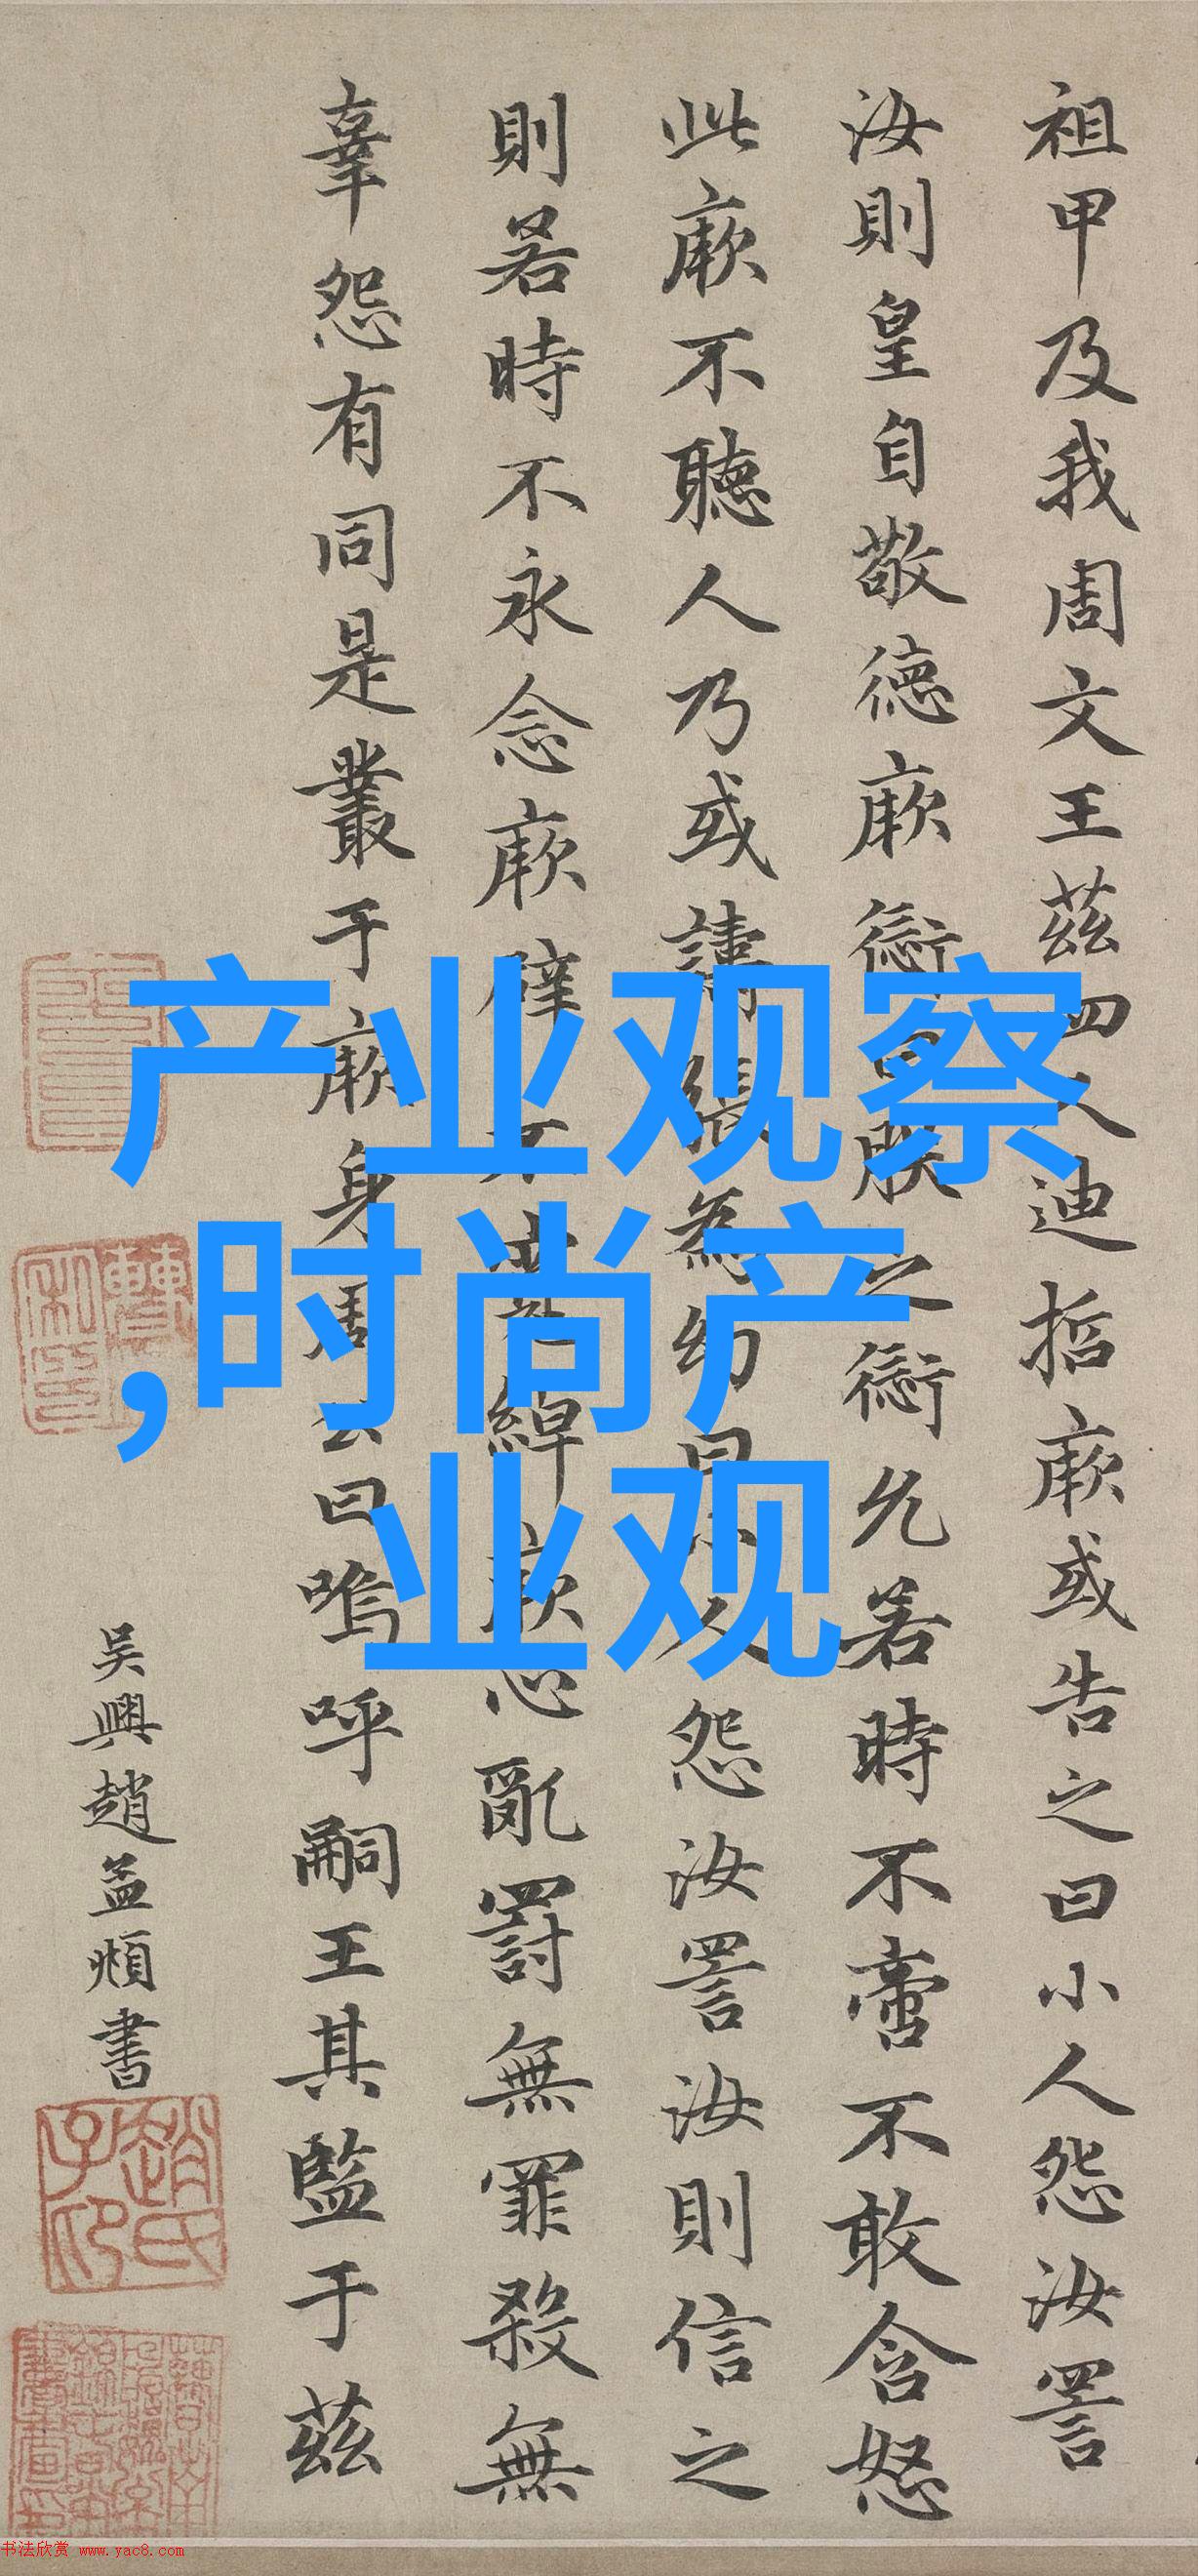 祖甲及我周文王茲四人迪哲厥或告之曰小人怨汝詈
汝則皇自敬德厥愆曰朕之愆允若時不啻不敢含怒
此厥不聽人乃或譸張為幻曰小人怨汝詈汝則信之
則若時不永念厥辟不寬綽厥心亂罰無罪殺無
辜怨有同是叢于厥身周公曰嗚呼嗣王其監于茲
吴興趙孟頫書
趙氏子印
产业观察
,时尚产
业观
书法欣赏 www.yac8.com